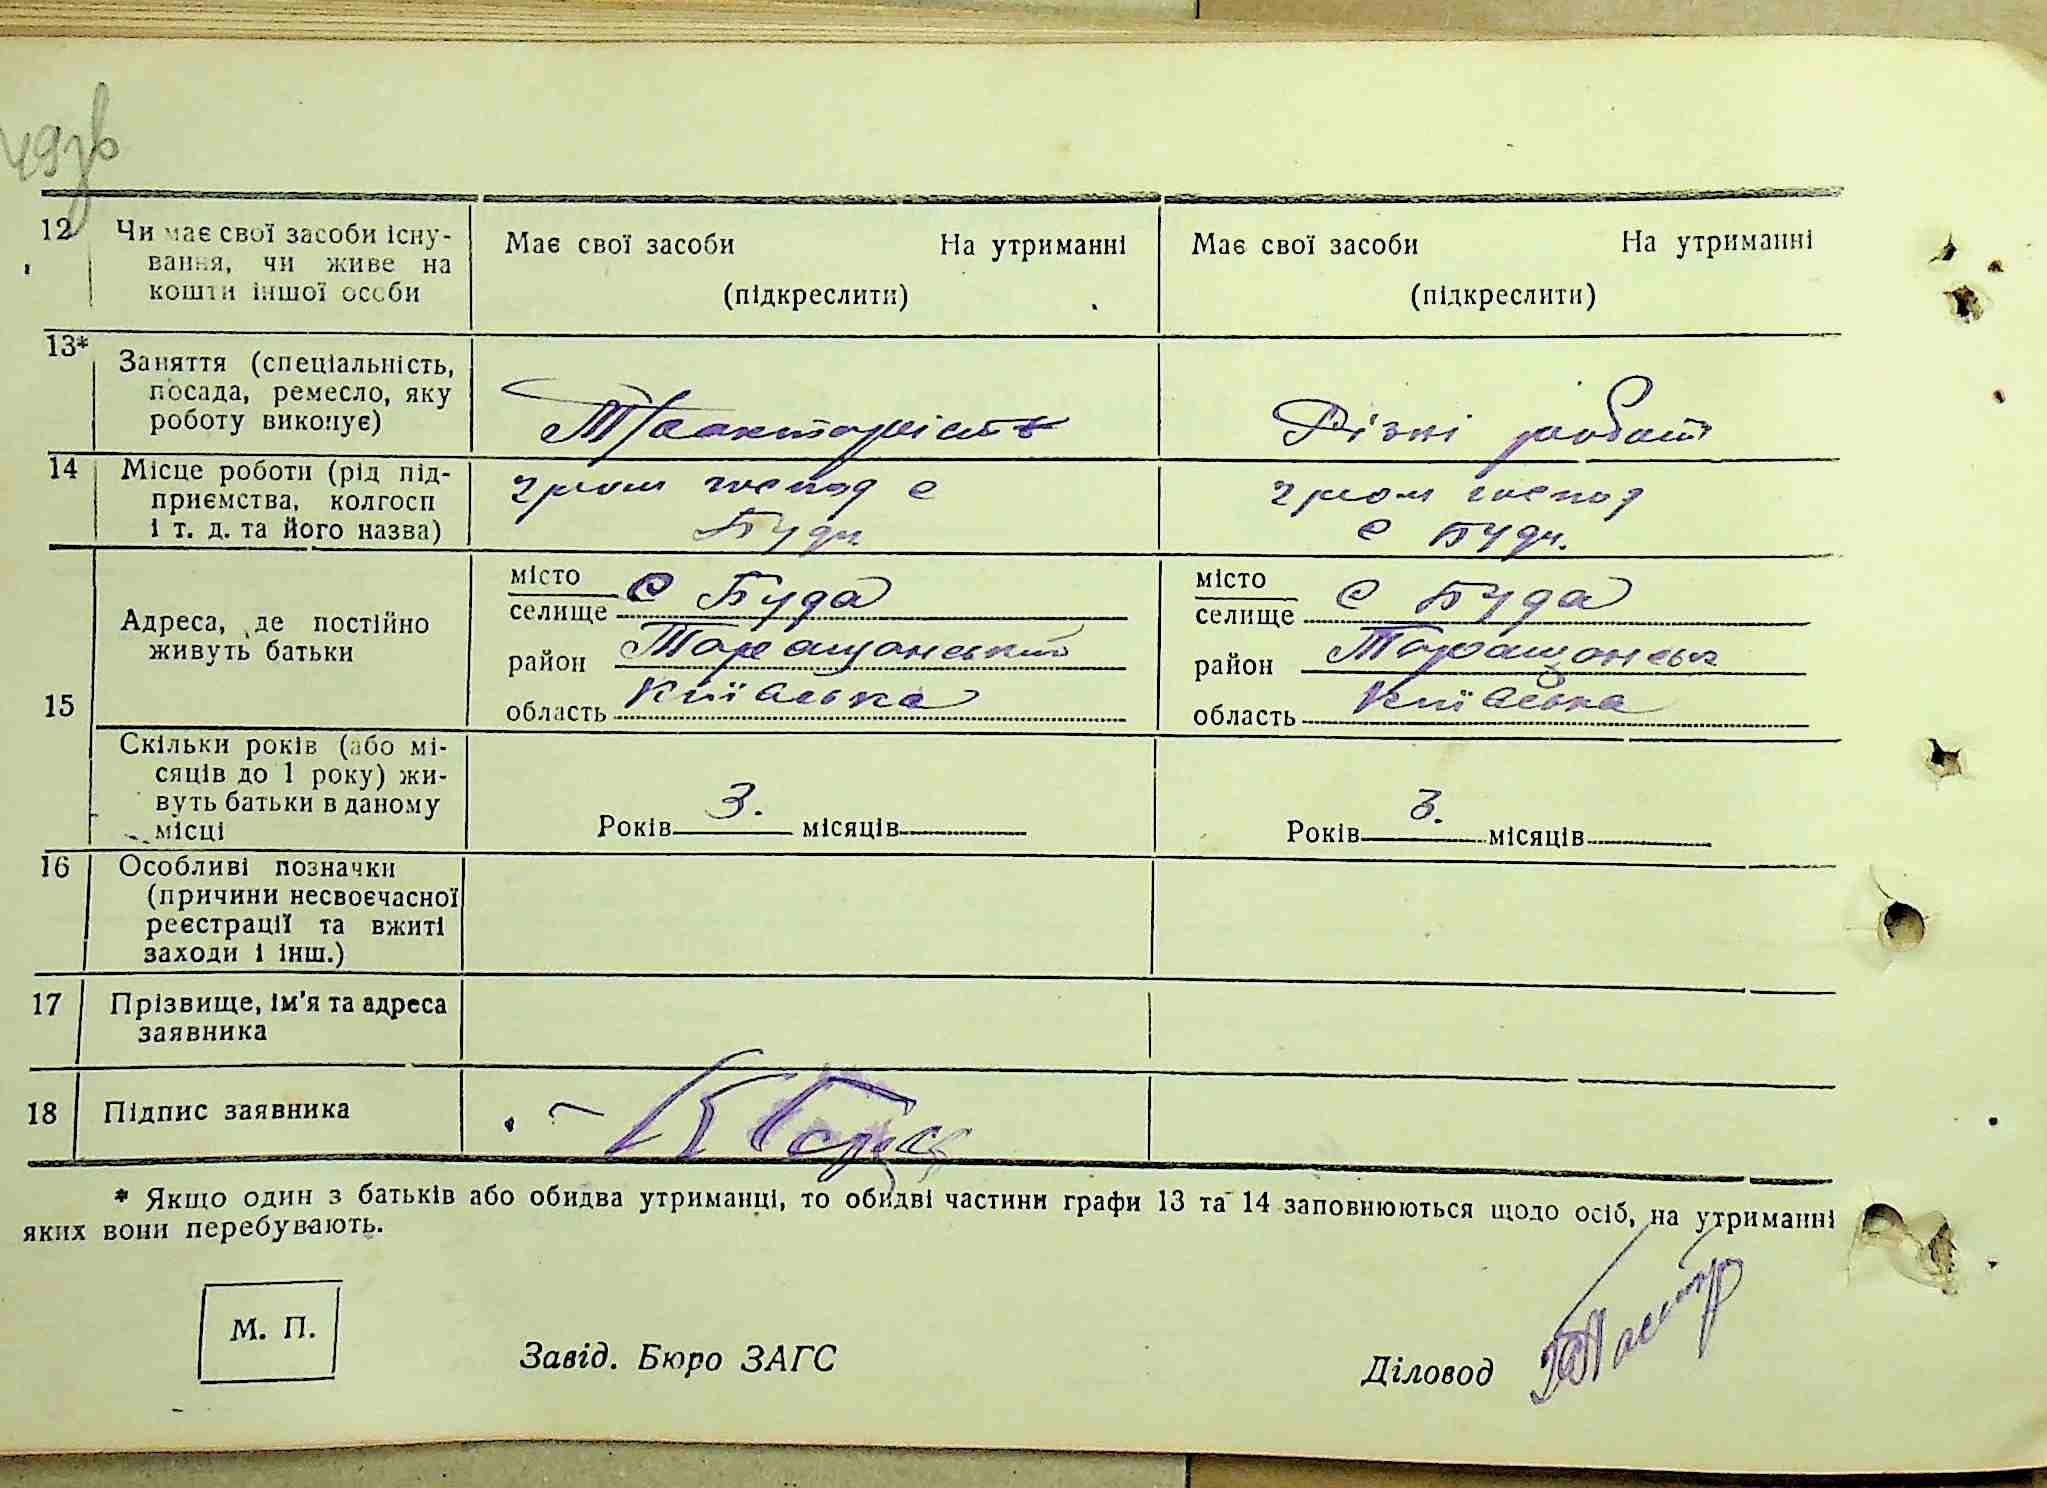 49зв
12 Чи має свої засоби існу-
вання, чи живе на
кошти іншої особи
Має свої засоби На утриманні
(підкреслити)
Має свої засоби На утриманні
(підкреслити)
13* Заняття (спеціальність,
посада, ремесло, яку
роботу виконує)
Тракторист
Різні робот
14 Місце роботи (рід під-
приємства, колгосп
і т. д. та його назва)
гром господ с
Буди
гром господ
с Буди.
15 Адреса, де постійно
живуть батьки
місто
селище с Буда
район Таращанський
область Київська
місто
селище с Буда
район Таращанськ
область Київська
Скільки років (або мі-
сяців до 1 року) жи-
вуть батьки в даному
місці
Років 3. місяців
Років 3. місяців
16 Особливі позначки
(причини несвоєчасної
реєстрації та вжиті
заходи і інш.)
17 Прізвище, ім'я та адреса
заявника
18 Підпис заявника
* Якщо один з батьків або обидва утриманці, то обидві частини графи 13 та 14 заповнюються щодо осіб, на утриманні
яких вони перебувають.
М. П.
Завід. Бюро ЗАГС
Діловод